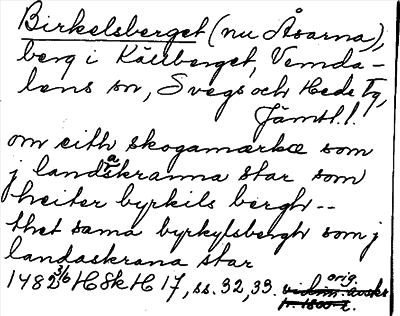 Birkelsberget (nu Åsarna),
berg i Källberget, Vemda-
lens sn, Svegs och Hede tg,
Jämtl.l.
om eith skogamærkæ som
j landaskranna star som
heiter byrkils bergh--
thet sama byrkylsbergh som j
landaskrana star
1482 3/6 HSkH 17, ss. 32, 33. orig.